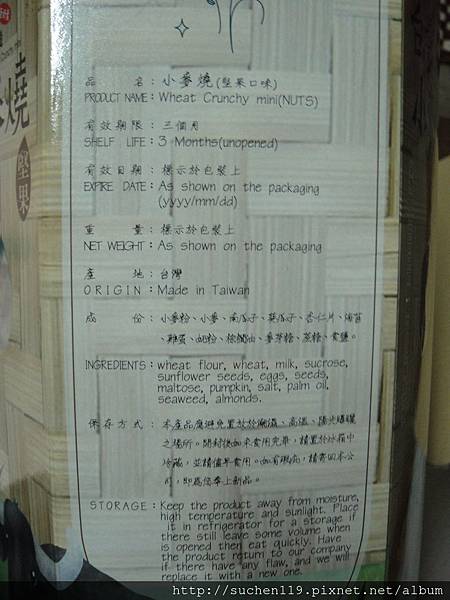 燒
堅果
品名：小麥燒(堅果口味)
PRODUCT NAME：Wheat Crunchy mini(NUTS)
有效期限：三個月
SHELF LIFE：3 Months(unopened)
有效日期：標示於包裝上
EXPIRE DATE：As shown on the packaging
(yyyy/mm/dd)
重量：標示於包裝上
NET WEIGHT：As shown on the packaging
產地：台灣
ORIGIN：Made in Taiwan
成份：小麥粉、小麥、南瓜子、葵瓜子、杏仁片、海苔
、雞蛋、奶粉、棕櫚油、麥芽糖、蔗糖、食鹽。
INGREDIENTS：wheat flour, wheat, milk, sucrose,
sunflower seeds, eggs, seeds,
maltose, pumpkin, salt, palm oil,
seaweed, almonds.
保存方式：本產品應避免置放於潮濕、高溫、陽光曝曬
之場所。開封後如未食用完畢，請置於冰箱中
冷藏，並請儘早食用。如有瑕疵，請寄回本公
司，即為您奉上新品。
STORAGE：Keep the product away from moisture,
high temperature and sunlight. Place
it in refrigerator for a storage if
there still leave some volume when
is opened then eat quickly. Have
the product return to our company
if there have any flaw, and we will
replace it with a new one.
http://suchen119.pixnet.net/album